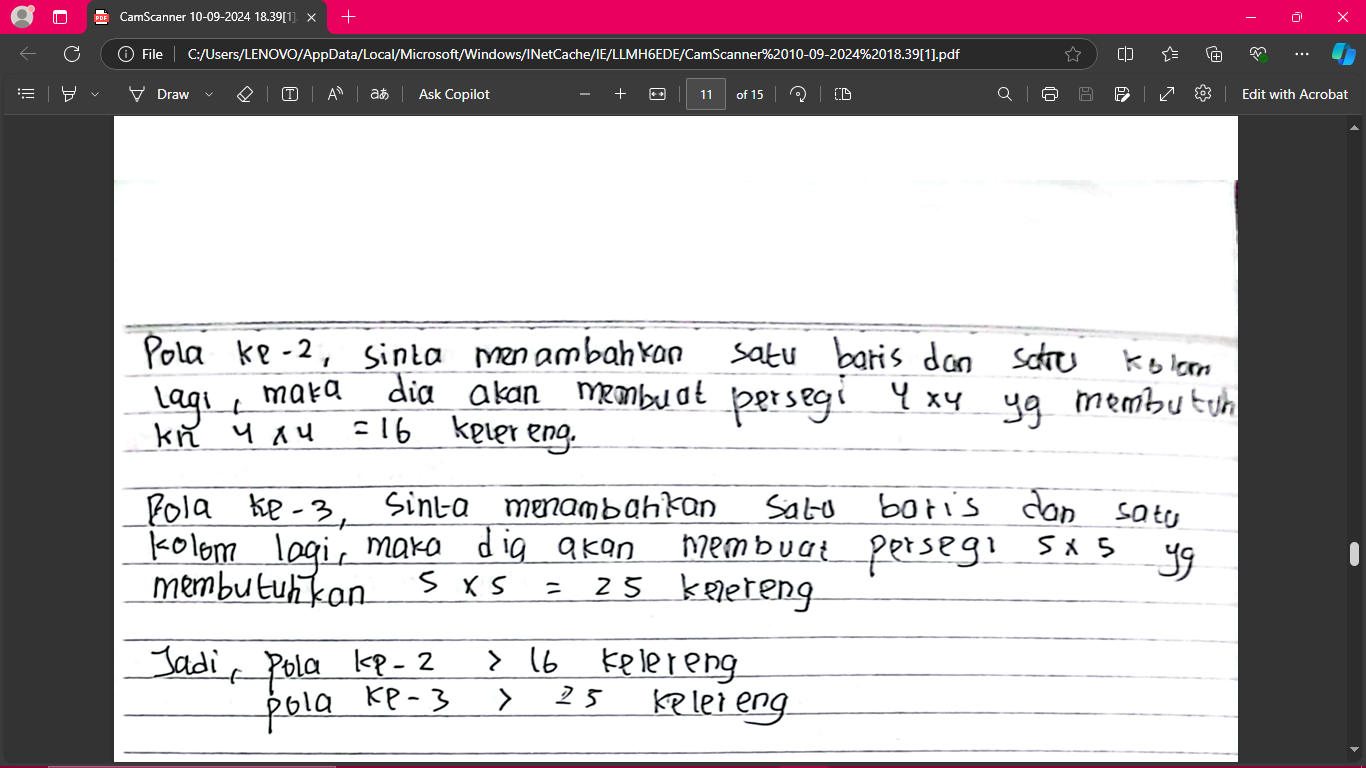 CamScanner 10-09-2024 18.39[1]
File C:/Users/LENOVO/AppData/Local/Microsoft/Windows/INetCache/IE/LLMH6EDE/CamScanner%2010-09-2024%2018.39[1].pdf
Draw Ask Copilot 11 of 15 Edit with Acrobat
Pola ke-2, sinta menambahkan satu baris dan satu kolom
lagi, maka dia akan membuat persegi 4x4 yg membutuh
kn 4 x 4 = 16 kelereng.
Pola ke-3, Sinta menambahkan satu baris dan satu
kolom lagi, maka dia akan membuat persegi 5 x 5 yg
membutuhkan 5 x 5 = 25 kelereng
Jadi, pola ke-2 > 16 kelereng
pola ke-3 > 25 kelereng